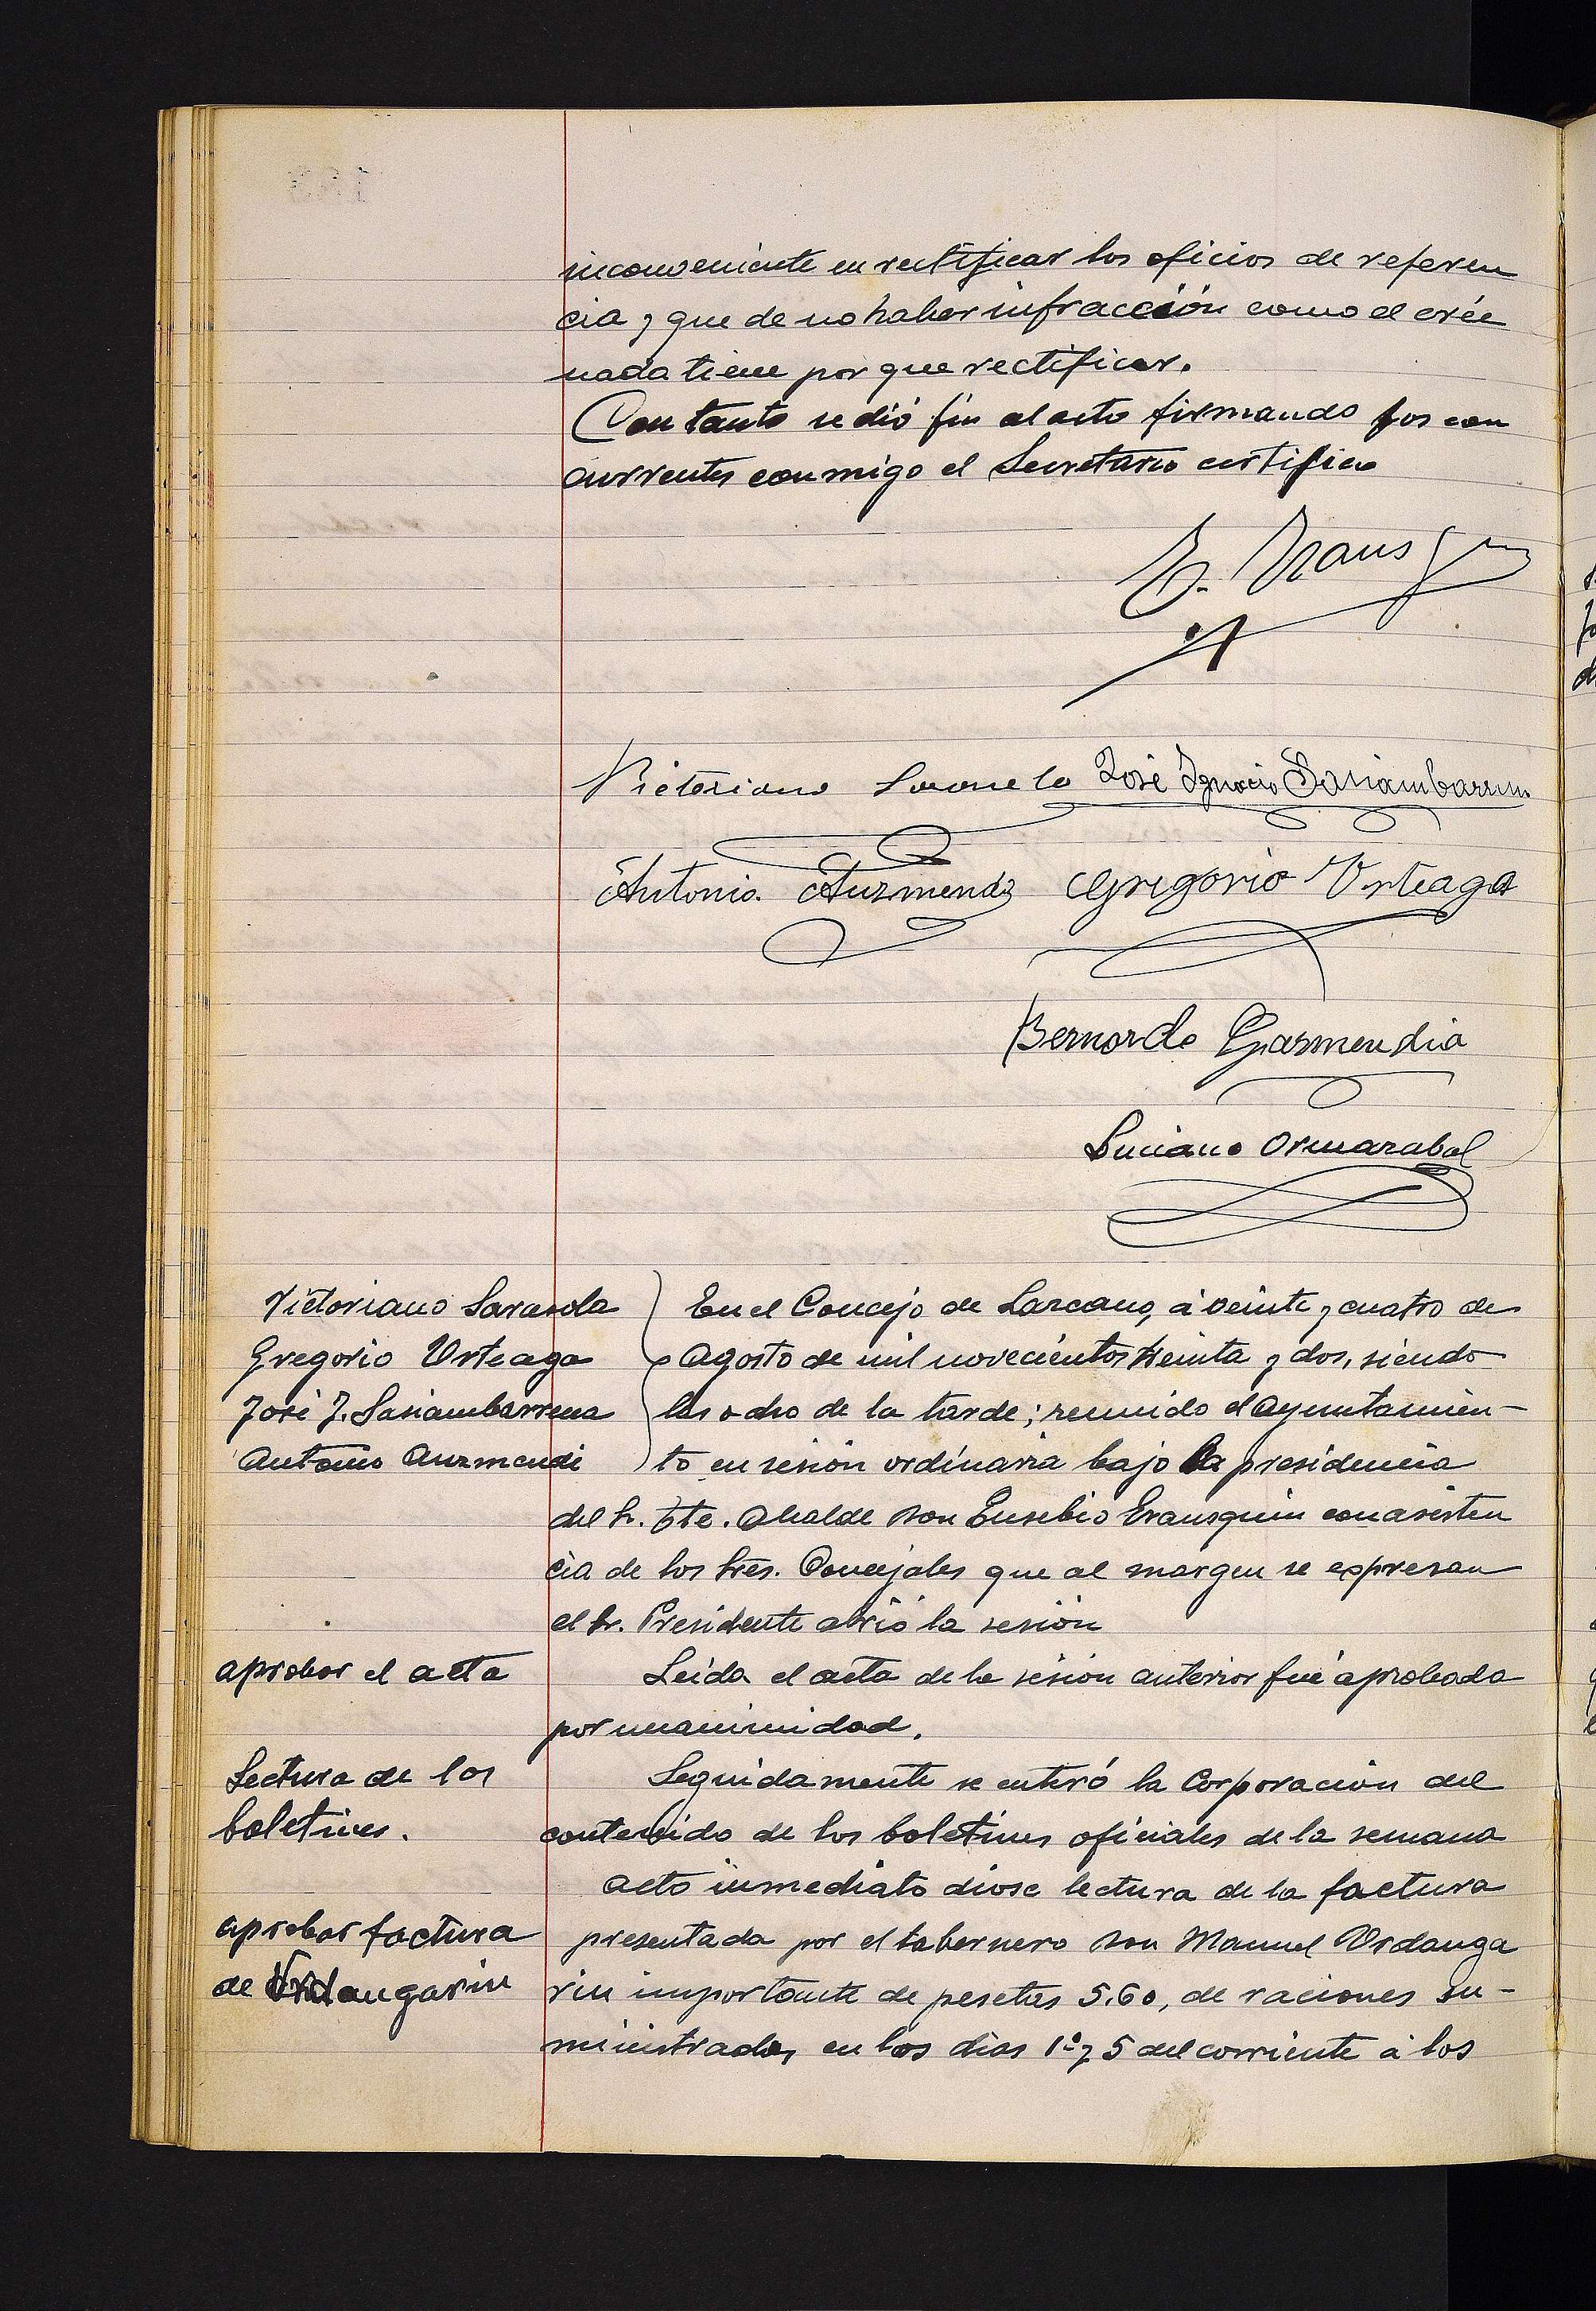 inconveniente en rectificar los oficios de referen
cia y que de no haber infracción como el crée
nada tiene por que rectificar.
Con tanto se dió fin al acto firmando los con
currentes conmigo el Secretario certifico
E. Eraus
Victoriano José Ignacio Sasiambarrena
Antonio Auzmendi Gregorio Urteaga
Bernardo Garmendia
Luciano Ormazabal
Victoriano Sarasola
Gregorio Urteaga
José I. Sasiambarrena
Antonio Auzmendi
En el Concejo de Lazcano, á veinte y cuatro de
Agosto de mil novecientos treinta y dos, siendo
las ocho de la tarde; reunido el Ayuntamien-
to en sesión ordinaria bajo la presidencia
del Sr. Tte. Alcalde Don Eusebio Erausquin con asisten
cia de los Sres. Concejales que al margen se expresan
el Sr. Presidente abrió la sesión
aprobar el acta
Leida el acta de la sesión anterior fué aprobada
por unanimidad.
Lectura de los
boletines.
Seguidamente se enteró la Corporación del
contenido de los boletines oficiales de la semana
Acto inmediato dióse lectura de la factura
aprobar factura
de Urdangarin
presentada por el tabernero Don Manuel Urdanga
rin importante de pesetas 5.60, de raciones su-
ministradas en los dias 1º y 5 del corriente á los